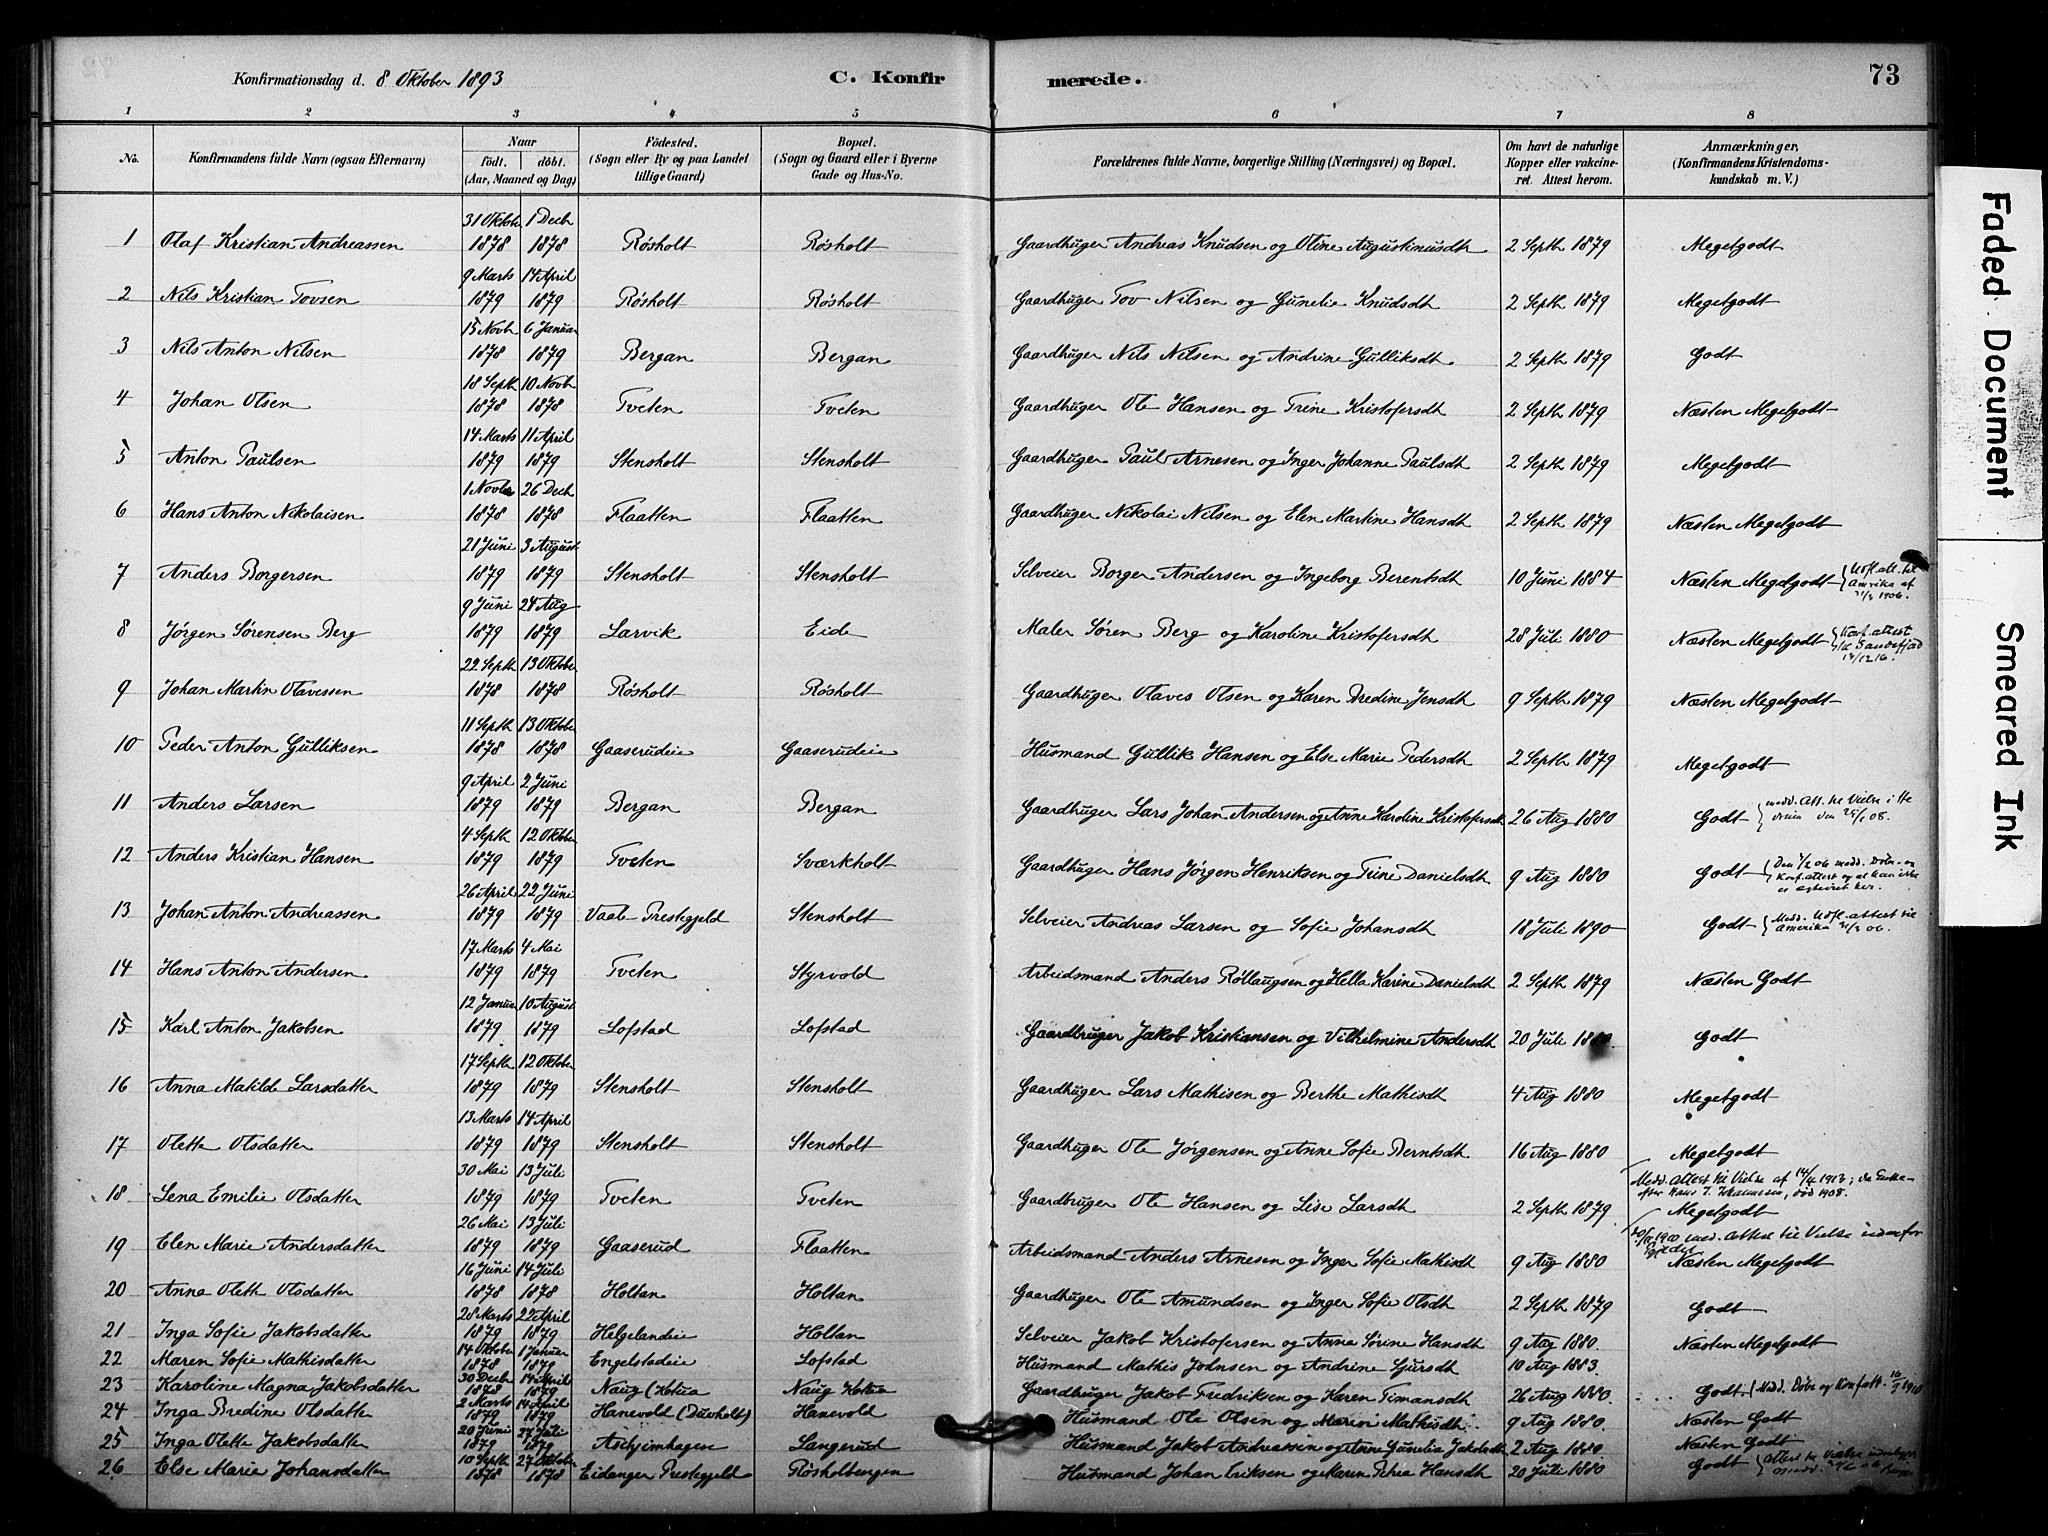 Konfirmationsdag d. 8 Oktober 1893 C. Konfirmerede. 73
1 2 3 4 5 6 7 8
No. Konfirmandens fulde Navn (ogsaa Efternavn) Naar födt. döbt. (Aar, Maaned og Dag) Födested. (Sogn eller By og paa Landet tillige Gaard) Bopæl. (Sogn og Gaard eller i Byerne Gade og Hus-No. Forældrenes fulde Navne, borgerlige Stilling (Næringsvei) og Bopæl. Om havt de naturlige Kopper eller vakcineret. Attest herom. Anmærkninger, (Konfirmandens Kristendomskundskab m. V.)
1 Olaf Kristian Andreassen 31 Oktober 1878 1 Decb 1878 Rösholt Rösholt Gaardbuger Andreas Knudsen og Oline Augustinusdtr 2 Septb 1879 Megetgodt
2 Nils Kristian Tovsen 9 Marts 1879 14 April 1879 Rösholt Rösholt Gaardbuger Tov Nilsen og Gunelie Knudsdtr 2 Septb 1879 Megetgodt
3 Nils Anton Nilsen 15 Novb 1878 6 Januar 1879 Bergan Bergan Gaardbuger Nils Nilsen og Andrine Gulliksdtr 2 Septb 1879 Godt
4 Johan Olsen 18 Septb 1878 10 Novb 1878 Tveten Tveten Gaardbuger Ole Hansen og Trine Kristofersdtr 2 Septb 1879 Næsten Megetgodt
5 Anton Paulsen 14 Marts 1879 11 April 1879 Stensholt Stensholt Gaardbuger Paul Arnesen og Inger Johanne Paulsdtr 2 Septb 1879 Megetgodt
6 Hans Anton Nikolaisen 1 Novb 1878 26 Decb 1878 Flaatten Flaatten Gaardbuger Nikolai Nilsen og Elen Martine Hansdtr 2 Septb 1879 Næsten Megetgodt
7 Anders Borgersen 21 Juni 1879 3 August 1879 Stensholt Stensholt Selveier Borger Andersen og Ingeborg Berentsdtr 10 Juni 1884 Næsten Megetgodt Udfl. att. til Amerika af 1906.
8 Jörgen Sörensen Berg 9 Juni 1879 24 Aug 1879 Larvik Eide Maler Sören Berg og Karoline Kristofersdtr 28 Juli 1880 Næsten Megetgodt Konf. attest til Sandefjord
9 Johan Martin Olavessen 22 Septb 1878 13 Oktober 1878 Rösholt Rösholt Gaardbuger Olaves Olsen og Karen Bredine Jensdtr 9 Septb 1879 Næsten Megetgodt
10 Peder Anton Gulliksen 11 Septb 1878 13 Oktober 1878 Gaaserudeie Gaaserudeie Husmand Gullik Hansen og Else Marie Pedersdtr 2 Septb 1879 Megetgodt
11 Anders Larsen 9 April 1879 2 Juni 1879 Bergan Bergan Gaardbuger Lars Johan Andersen og Anne Karoline Kristofersdtr 26 Aug 1880 Godt medd. Att. til Vielse i
12 Anders Kristian Hansen 4 Septb 1879 12 Oktober 1879 Tveten Sværkholt Gaardbuger Hans Jörgen Henriksen og Trine Danielsdtr 9 Aug 1880 Godt medd. Döbs- og Konf. attest og at han ikke er ægteviet her.
13 Johan Anton Andreassen 26 April 1879 22 Juni 1879 Vaale Prestegjeld Stensholt Selveier Andreas Larsen og Sofie Johansdtr 18 Juli 1890 Godt Medd. Udfl. attest til Amerika
14 Hans Anton Andersen 17 Marts 1879 4 Mai 1879 Tveten Styrvold Arbeidsmand Anders Röllaugsen og Hella Karine Danielsdtr 2 Septb 1879 Næsten Godt
15 Karl Anton Jakobsen 12 Januar 1879 10 August 1879 Lofstad Lofstad Gaardbruger Jakob Kristiansen og Vilhelmine Andersdtr 20 Juli 1880. Godt
16 Anna Matilde Larsdatter 17 Septb 1879 12 Oktober 1879 Stensholt Stensholt Gaardbuger Lars Mathisen og Berthe Mathisdtr 4 Aug 1880 Megetgodt
17 Olette Olsdatter 13 Marts 1879 14 April 1879 Stensholt Stensholt Gaardbuger Ole Jörgensen og Anne Sofie Berntsdtr 16 Aug 1880 Megetgodt
18 Lena Emilie Olsdatter 30 Mai 1879 13 Juli 1879 Tveten Tveten Gaardbruger Ole Hansen og Lise Larsdtr 2 Septb 1879 Medd. attest til Vielse af 14/4 1913; da Enke efter Hans J. Johannesen, död 1908. Megetgodt
19 Elen Marie Andersdatter 26 Mai 1879 13 Juli 1879 Gaaserud Flaatten Arbeidsmand Anders Arnesen og Inger Sofie Mathisdtr 9 Aug 1880 1900 med. attest til Vielse udenfor Næsten Megetgodt
20 Anna Olette Olsdatter 16 Juni 1878 14 Juli 1878 Holtan Holtan Gaardbuger Ole Amundsen og Inger Sofie Olsdtr 2 Septb 1879 Godt
21 Inga Sofie Jakobsdatter 28 Marts 1879 22 April 1879 Helgelandeie Holtan Selveier Jakob Kristofersen og Anna Sörine Hansdtr 9 Aug 1880. Næsten Megetgodt
22 Maren Sofie Mathisdatter 14 Oktober 1878 1 Januar 1879 Engelstadeie Lofstad Husmand Mathis Johnsen og Andrine Sjursdtr 10 Aug 1883.
23 Karoline Magna Jakobsdatter 30 Decb 1878 14 April 1879 Naug (Kotua Naug Kotua Gaardbuger Jakob Fredriksen og Karen Timansdtr 26 Aug 1880. Godt Medd. Döbs og Konf. att.
24 Inga Bredine Olsdatter 2 Marts 1879 14 April 1879 Hanevold (Duvholt) Hanevold Husmand Ole Olsen og Maren Mathisdtr 9 Aug 1880. Næsten Godt
25 Inga Olette Jakobsdatter 20 Juni 1879 27 Juli 1879 Askjimhagen Langerud Husmand Jakob Andreassen og Anne Gunelia Jakobsdtr 2 Aug 1880 Næsten Godt
26 Else Marie Johansdatter 10 Septb 1878 27 Oktober 1878 Eidanger Prestegjeld Rösholbergen Husmand Johan Eriksen og Maren Petrea Hansdtr 20 Juli 1880 Godt Attest til Vielse medd.
Faded Document
Smeared Ink